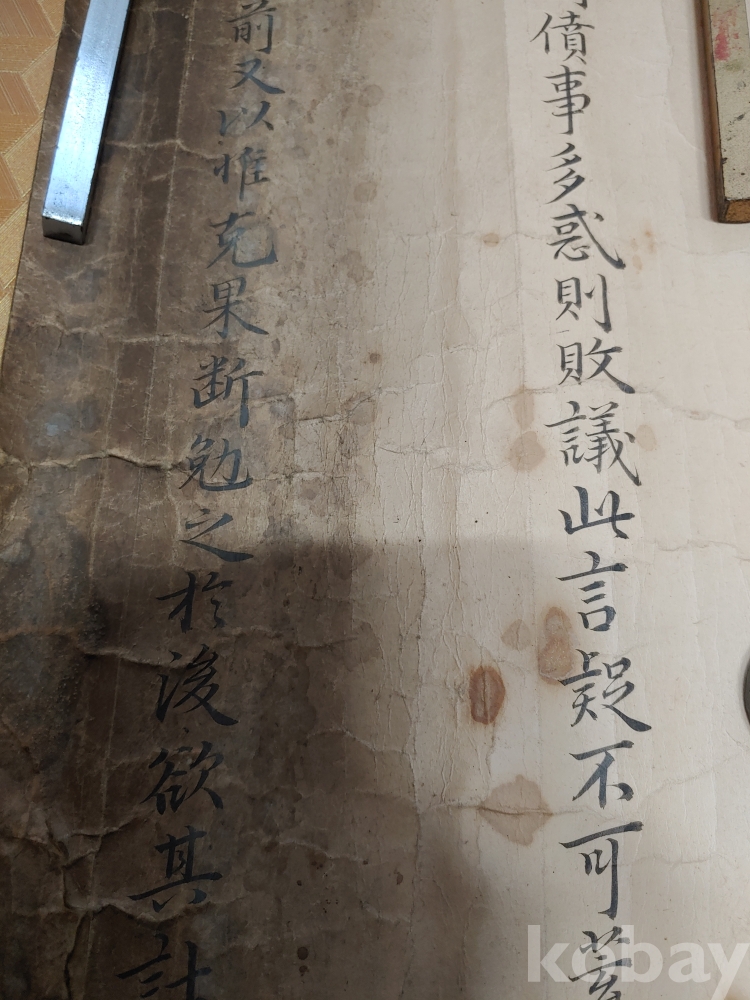 債事多惑則敗議此言疑不可蓄
前又以惟克果断勉之於後欲其計
kobay